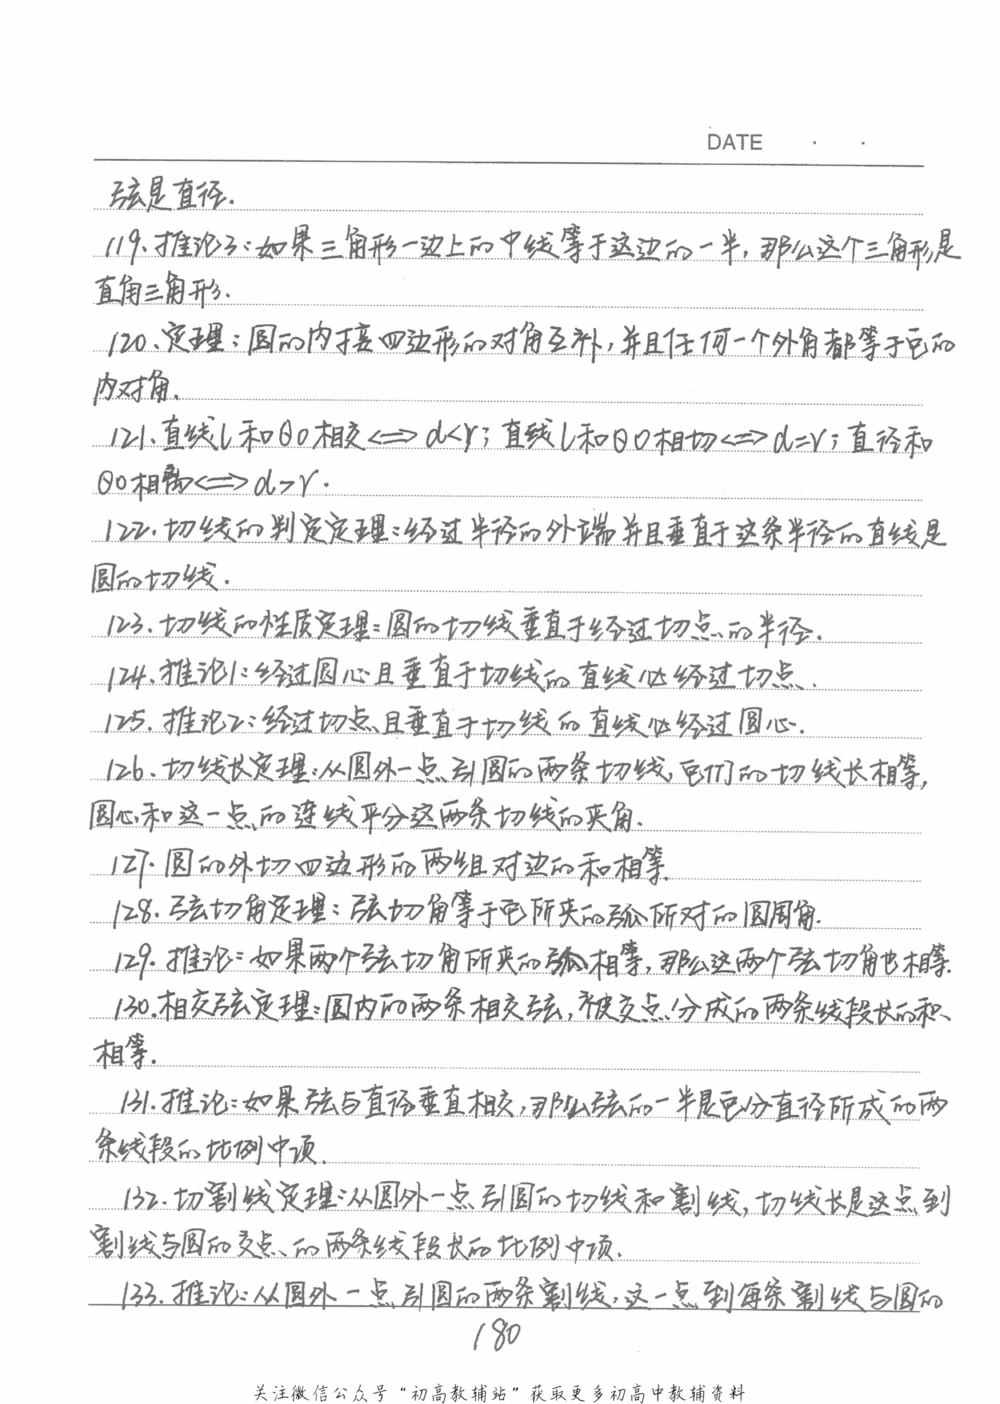 DATE · ·
弦是直径.
119.推论3:如果三角形一边上的中线等于这边的一半,那么这个三角形是
直角三角形.
120.定理:圆的内接四边形的对角互补,并且任何一个外角都等于它的
内对角.
121.直线l和⊙O相交⟺d<r;直线l和⊙O相切⟺d=r;直径和
⊙O相离⟺d>r.
122.切线的判定定理:经过半径的外端并且垂直于这条半径的直线是
圆的切线.
123.切线的性质定理:圆的切线垂直于经过切点的半径.
124.推论1:经过圆心且垂直于切线的直线必经过切点.
125.推论2:经过切点且垂直于切线的直线必经过圆心.
126.切线长定理:从圆外一点引圆的两条切线,它们的切线长相等,
圆心和这一点的连线平分这两条切线的夹角.
127.圆的外切四边形的两组对边的和相等.
128.弦切角定理:弦切角等于它所夹的弧所对的圆周角.
129.推论:如果两个弦切角所夹的弧相等,那么这两个弦切角也相等.
130.相交弦定理:圆内的两条相交弦,被交点分成的两条线段长的积
相等.
131.推论:如果弦与直径垂直相交,那么弦的一半是它分直径所成的两
条线段的比例中项.
132.切割线定理:从圆外一点引圆的切线和割线,切线长是这点到
割线与圆的交点的两条线段长的比例中项.
133.推论:从圆外一点引圆的两条割线,这一点到每条割线与圆的
180
关注微信公众号“初高教辅站”获取更多初高中教辅资料